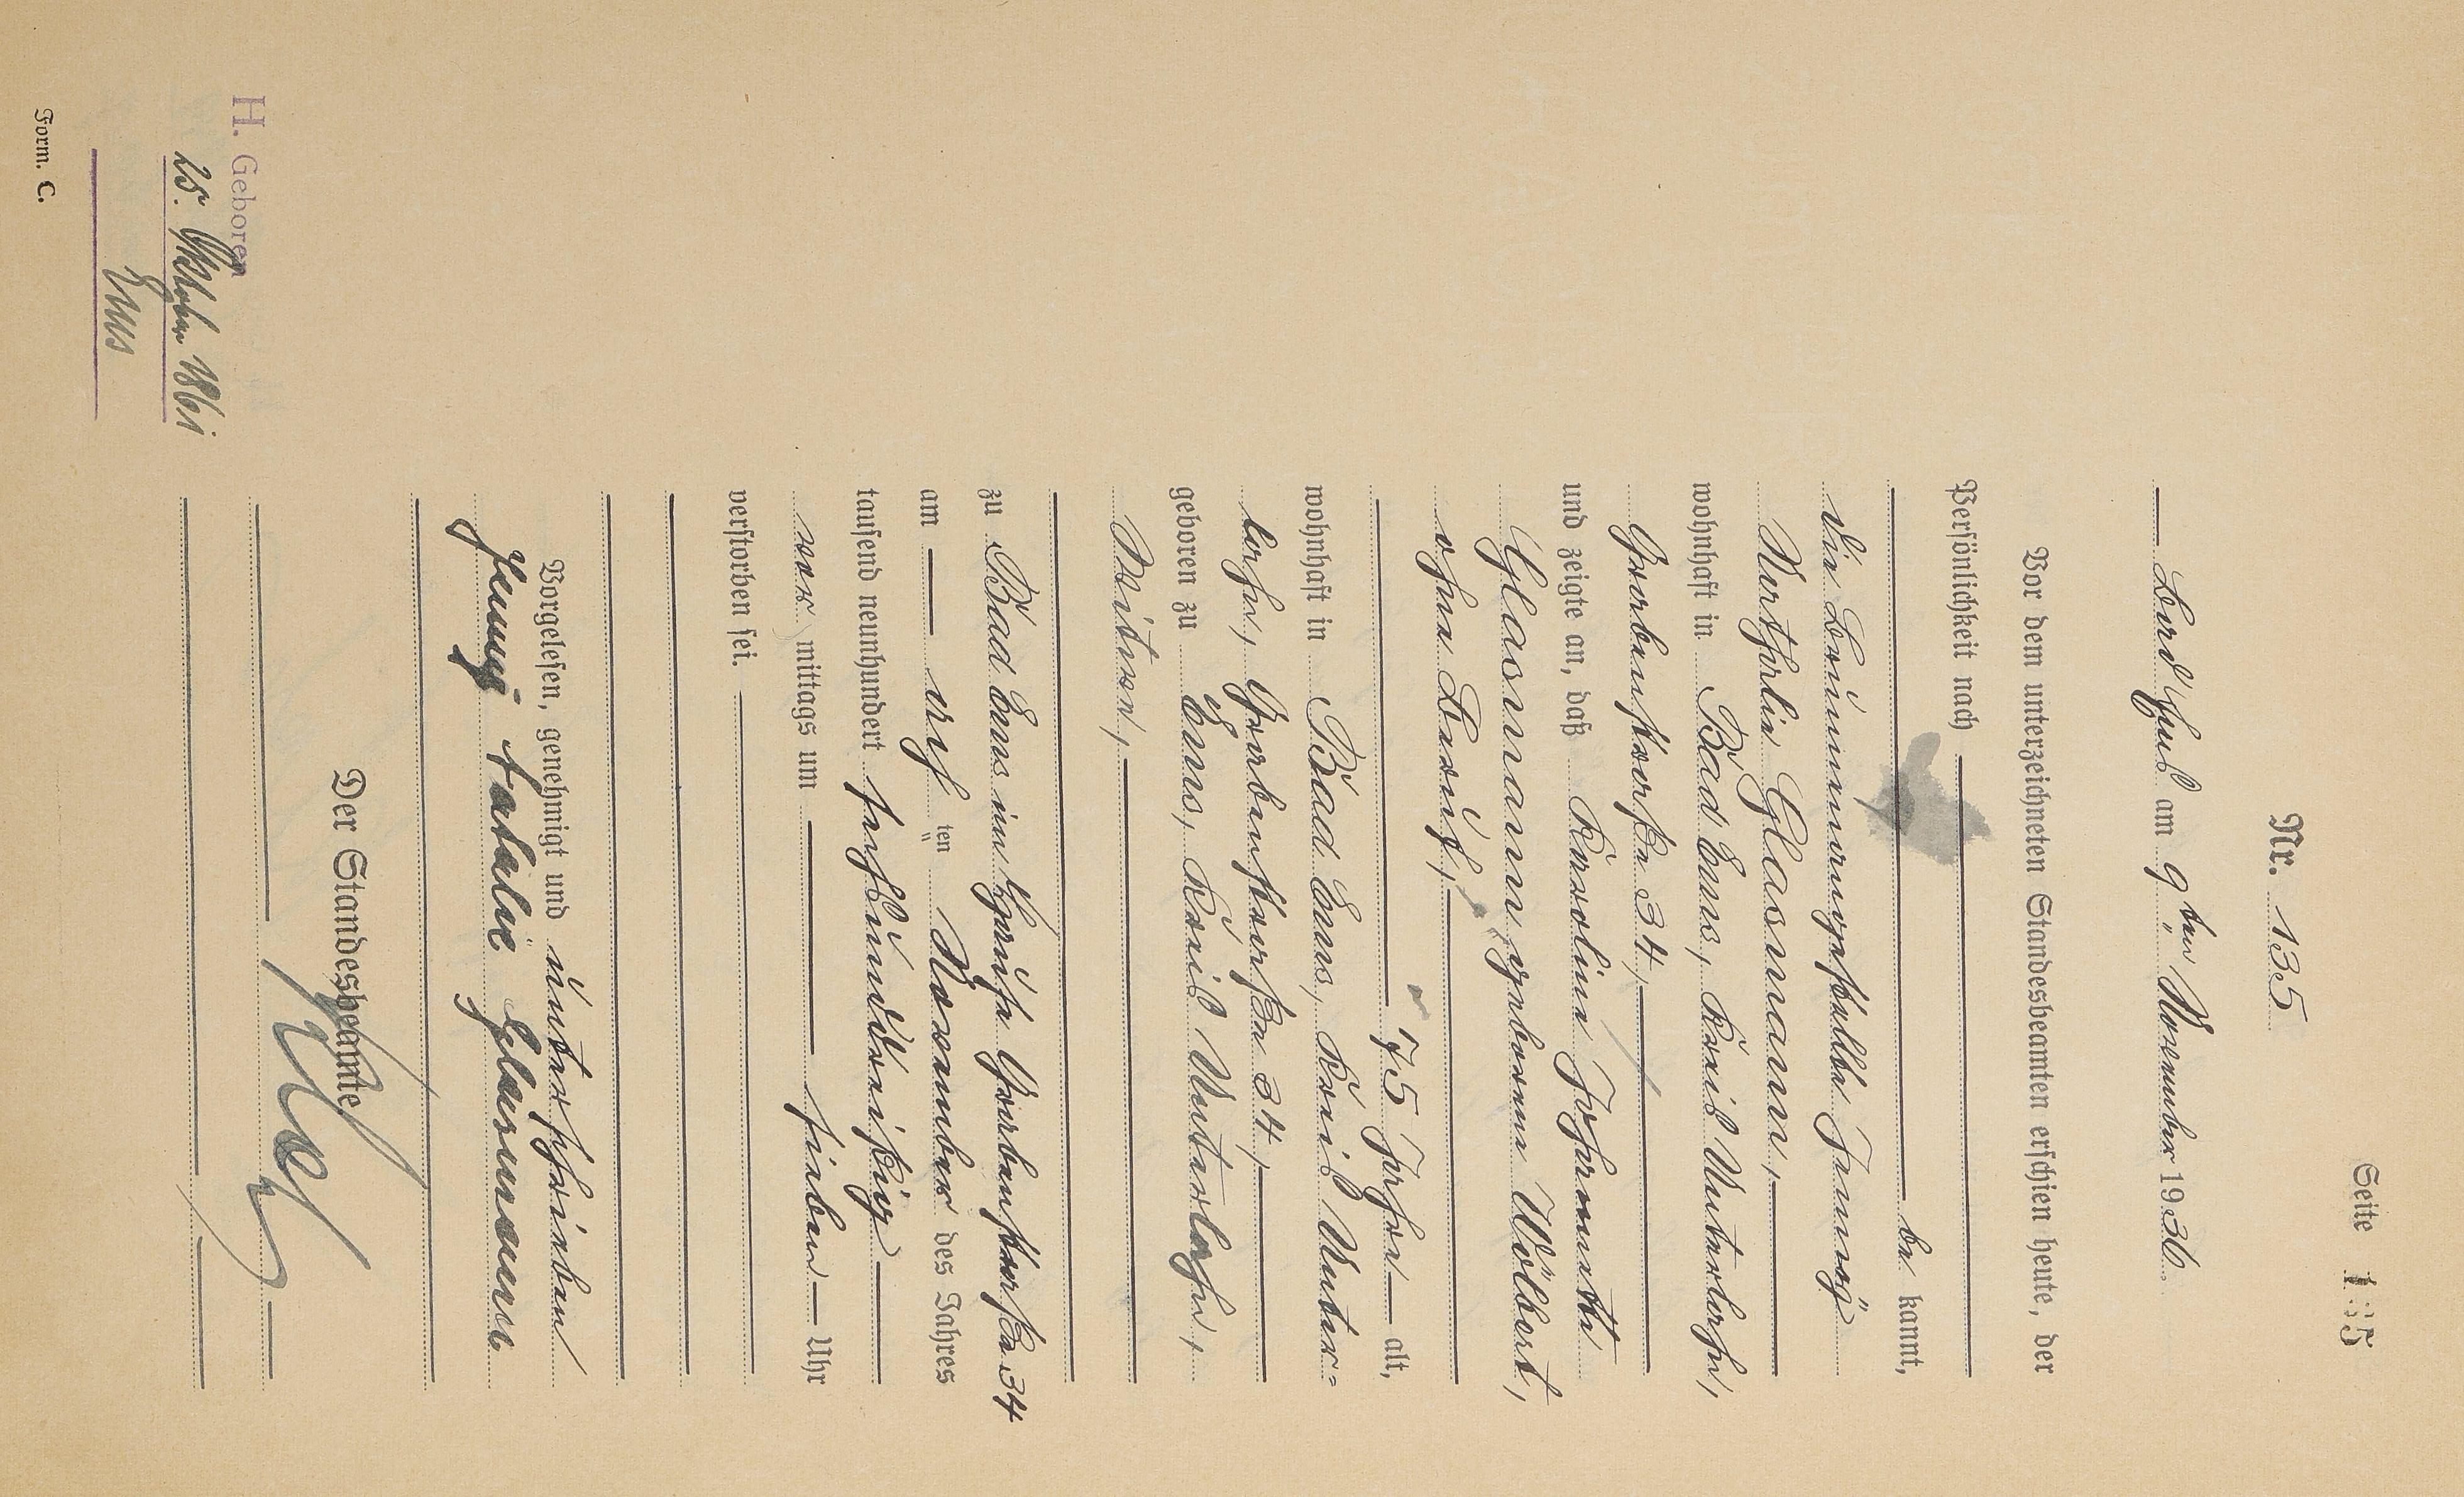 Seite 135
Nr. 135
Bad Ems am 9ten November 1936.
Vor dem unterzeichneten Standesbeamten erschien heute, der
Persönlichkeit nach
be kannt,
die Bäuming Jenny
Natalie Glasmann,
wohnhaft in Bad Ems, Kreis Unterlahn,
Grabenstraße 34,
und zeigte an, daß Karoline Johannette
Glasmann geborene Wölbert,
ohne Beruf,
75 Jahre alt,
wohnhaft in Bad Ems, Kreis Unter-
lahn, Grabenstraße 34,
geboren zu Ems, Kreis Unterlahn,
Witwe,
zu Bad Ems im Hause Grabenstraße 34
am acht ten November des Jahres
tausend neunhundert sechsunddreißig
vor mittags um sieben Uhr
verstorben sei.
Vorgelesen, genehmigt und unterschrieben
Jenny Natalie Glasmann
Der Standesbeamte
H. Geboren
25. Oktober 1861
Ems
Form. C.